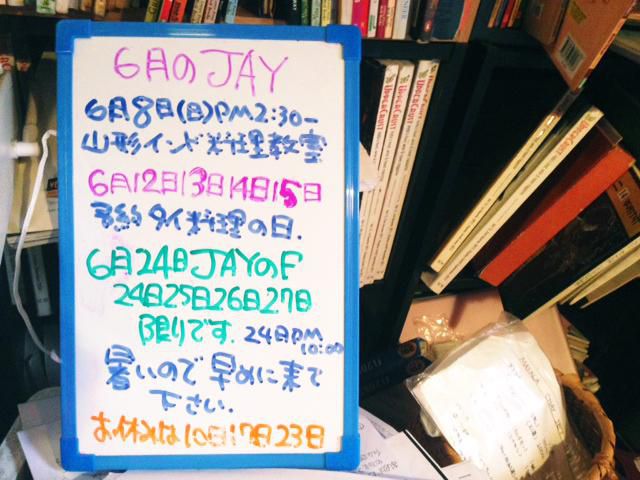 6月のJAY
6月8日(日)PM2:30-
山形インド料理教室
6月12日13日14日15日
予約タイ料理の日.
6月24日JAYのF
24日25日26日27日
限りです. 24日PM
10:00
暑いので早めに来て
下さい.
お休みは10日17日23日
UPPERCRUST
UPPERCRUST
UPPERCRUST